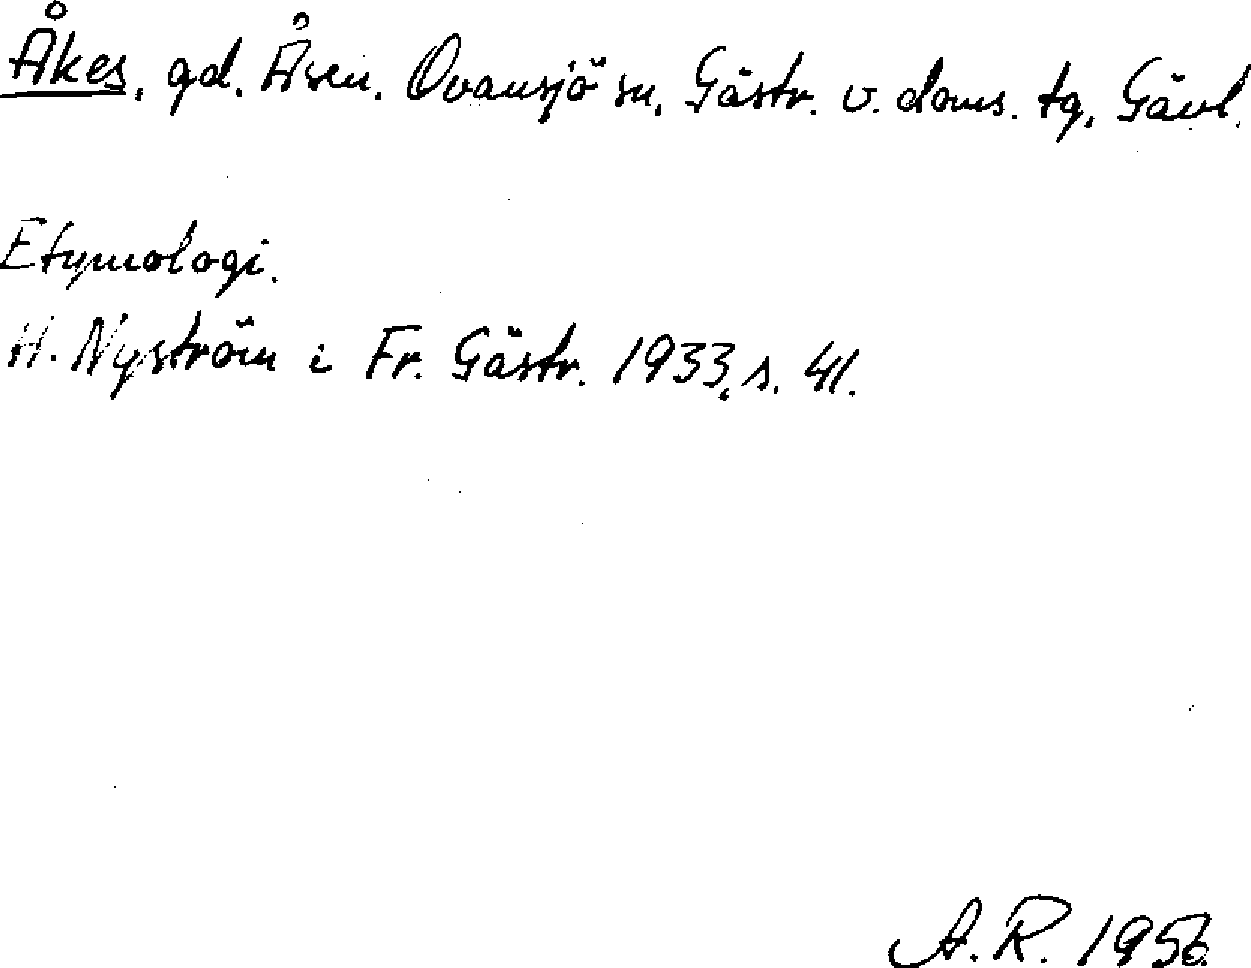 Åkes, gd. Åsen. Ovansjö sn, Gästr. v. doms. tg, Gävl.
Etymologi.
H. Nyström i Fr. Gästr. 1933, s. 41.
A.R. 1956